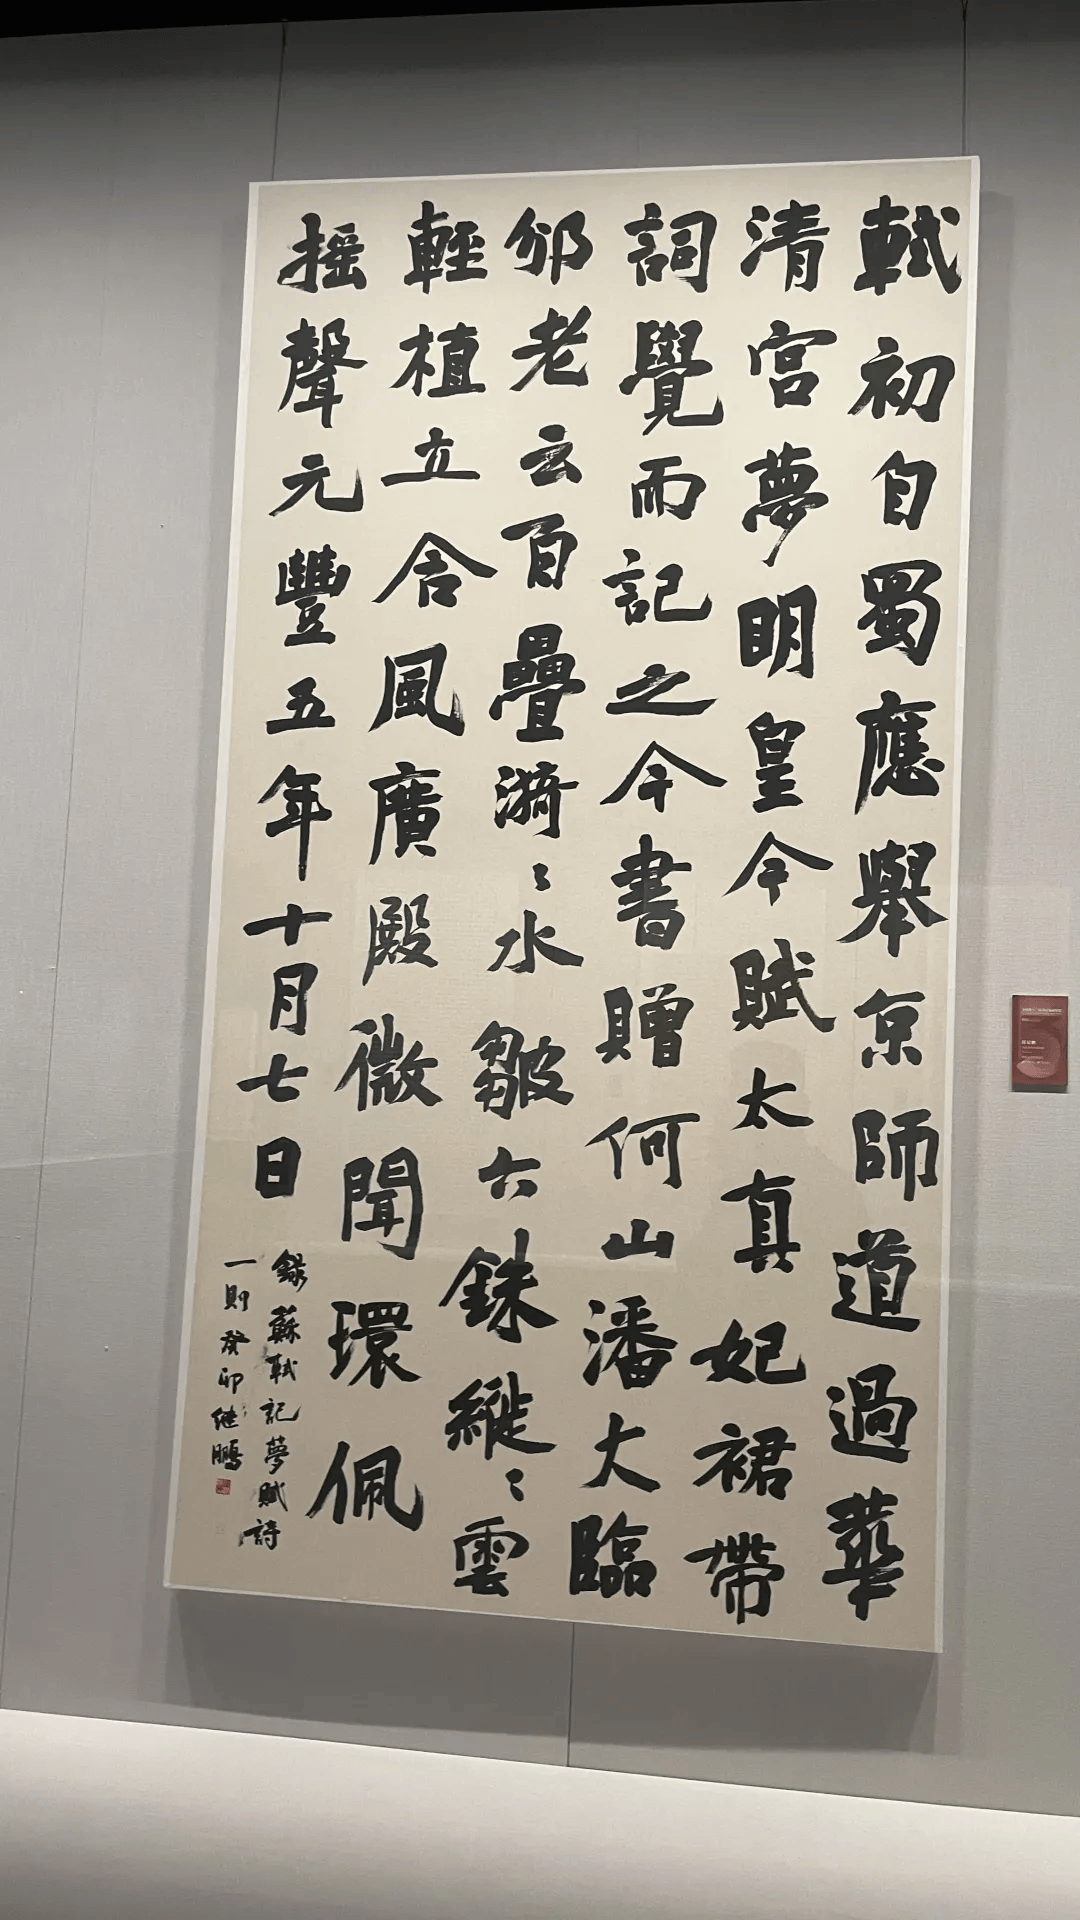 軾初自蜀應舉京師道過華
清宮夢明皇令賦太真妃裙帶
詞覺而記之今書贈何山潘大臨
邠老云百疊漪〻水皺六銖縰〻雲
輕植立含風廣殿微聞環佩
搖聲元豐五年十月七日
錄蘇軾記夢賦詩
一則癸卯继鵬